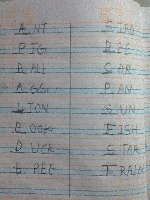 ANT
PIG
BALL
AGG
LION
BOOK
DUCK
TREE
BEE
CAR
PAN
SUN
FISH
STAR
TRAIN